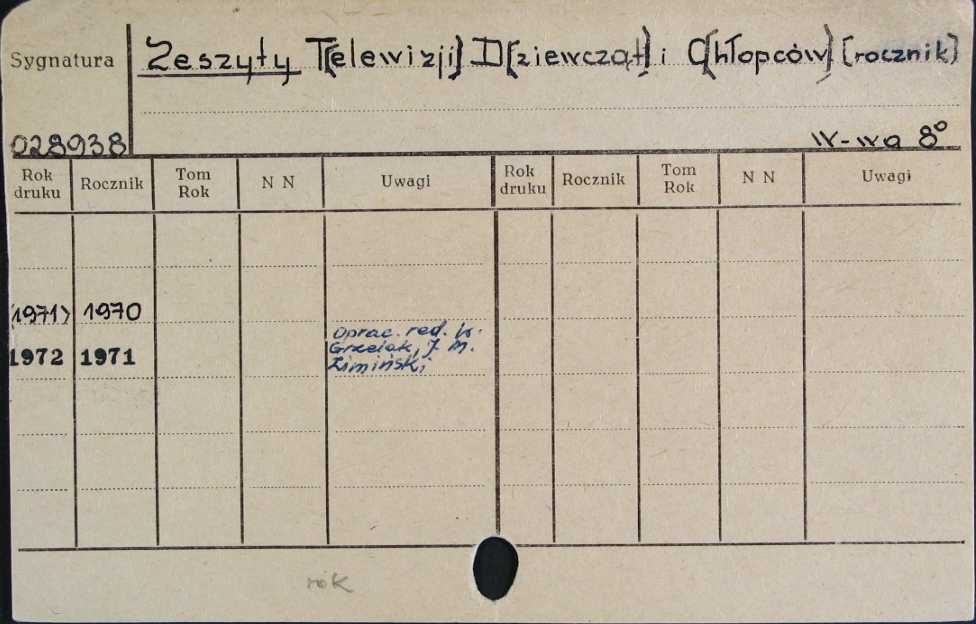 Sygnatura
Zeszyty T[elewizji] D[ziewcząt] i C[hłopców] [rocznik]
028938
W-wa 8°
Rok druku Rocznik Tom Rok N N Uwagi Rok druku Rocznik Tom Rok N N Uwagi
(1971) 1970
1972 1971 Oprac. red. W.
Grzelak, J. M.
Zimiński
rok